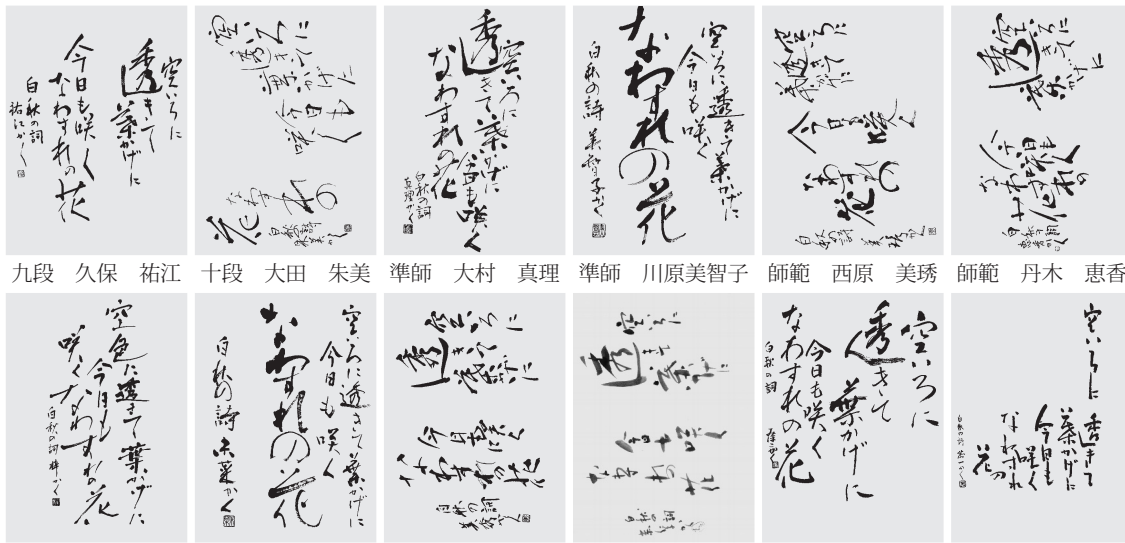 空いろに
透きて
葉かげに
今日も咲く
なわすれの
花
白秋の詞
祐江かく
空いろに
透きて
葉かげに
今日も
咲く
なわすれの
花
空いろに
透きて葉かげに
今日も咲く
なわすれの花
白秋の詞
真理かく
空いろに透きて葉かげに
今日も咲く
なわすれの花
白秋の詩 美智子かく
空いろに
透きて
葉かげに
今日も咲く
なわすれの
花
白秋の詩
空いろに
透きて
葉かげに
今日も
咲く
なわすれの
花
九段 久保 祐江
十段 大田 朱美
準師 大村 真理
準師 川原美智子
師範 西原 美琇
師範 丹木 恵香
空色に透きて葉かげに
今日も
咲くなわすれの花
白秋の詞
空いろに透きて葉かげに
今日も咲く
なわすれの花
白秋の詩
空いろに
透きて
葉かげに
今日も咲く
なわすれの花
白秋の詞
空いろに
透きて
葉かげに
今日も咲く
なわすれの花
空いろに
透きて
葉かげに
今日も咲く
なわすれの花
白秋の詞
空いろに
透きて
葉かげに
今日も
咲く
なわすれ
花の